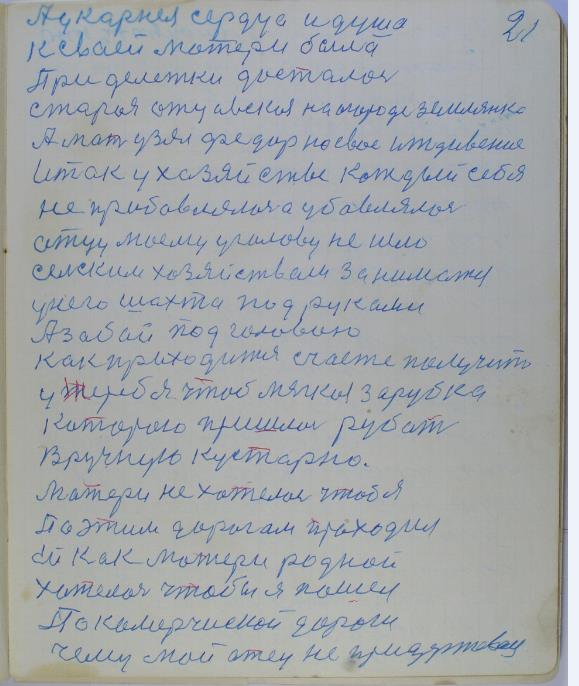 21
А у карнея сердца и душа
к сваей матери была
При делешки досталось
старая отцавская на огороде землянка
А мат узял федар на свое иждивение
Итак у хазяйстве каждый себя
не прибавлялося а убавлялося
отцу моему у голову не шло
селским хозяйствам занимажи
унего шахта под руками
А забой под головою
как приходится счасте получить
у жеребя чтоб мягкая зарубка
которою пришлос рубат
вручную кустарно.
матери не хотелос чтоб я
По этим дорогам праходил
ей как матери родной
хотелос чтобы я пошел
По камерчиской дороги
чему мой отец не придержовал